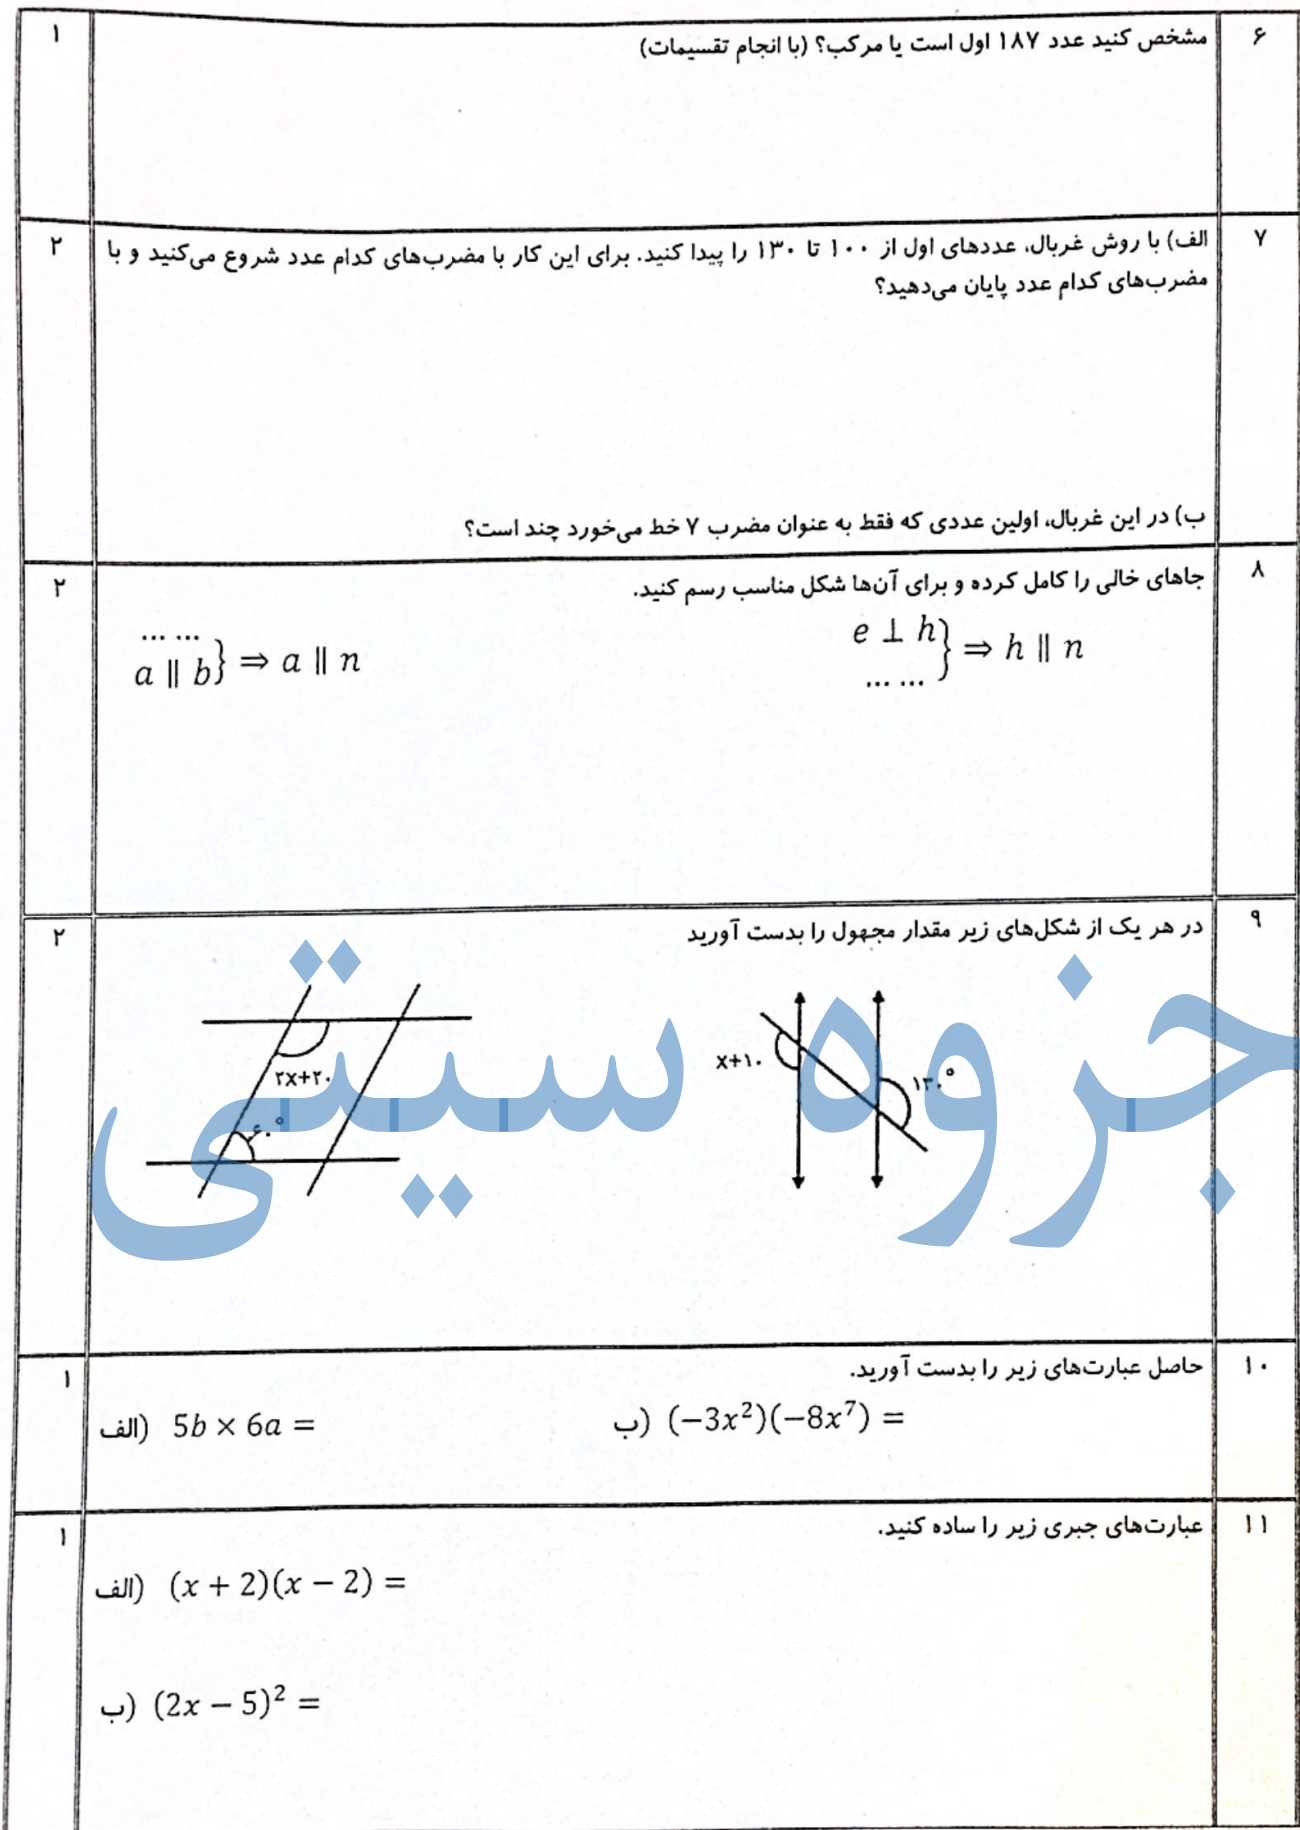 ۶
مشخص کنید عدد ۱۸۷ اول است یا مرکب؟ (با انجام تقسیمات)
۱
۷
الف) با روش غربال، عددهای اول از ۱۰۰ تا ۱۳۰ را پیدا کنید. برای این کار با مضرب‌های کدام عدد شروع می‌کنید و با
مضرب‌های کدام عدد پایان می‌دهید؟
ب) در این غربال، اولین عددی که فقط به عنوان مضرب ۷ خط می‌خورد چند است؟
۲
۸
جاهای خالی را کامل کرده و برای آن‌ها شکل مناسب رسم کنید.
e ⊥ h
... ... } ⇒ h ∥ n
... ...
a ∥ b } ⇒ a ∥ n
۲
۹
در هر یک از شکل‌های زیر مقدار مجهول را بدست آورید
x+۱۰
۱۳۰°
۲x+۲۰
۶۰°
۲
جزوه سیتی
۱۰
حاصل عبارت‌های زیر را بدست آورید.
الف) 5b × 6a =
ب) (−3x²)(−8x⁷) =
۱
۱۱
عبارت‌های جبری زیر را ساده کنید.
الف) (x + 2)(x − 2) =
ب) (2x − 5)² =
۱